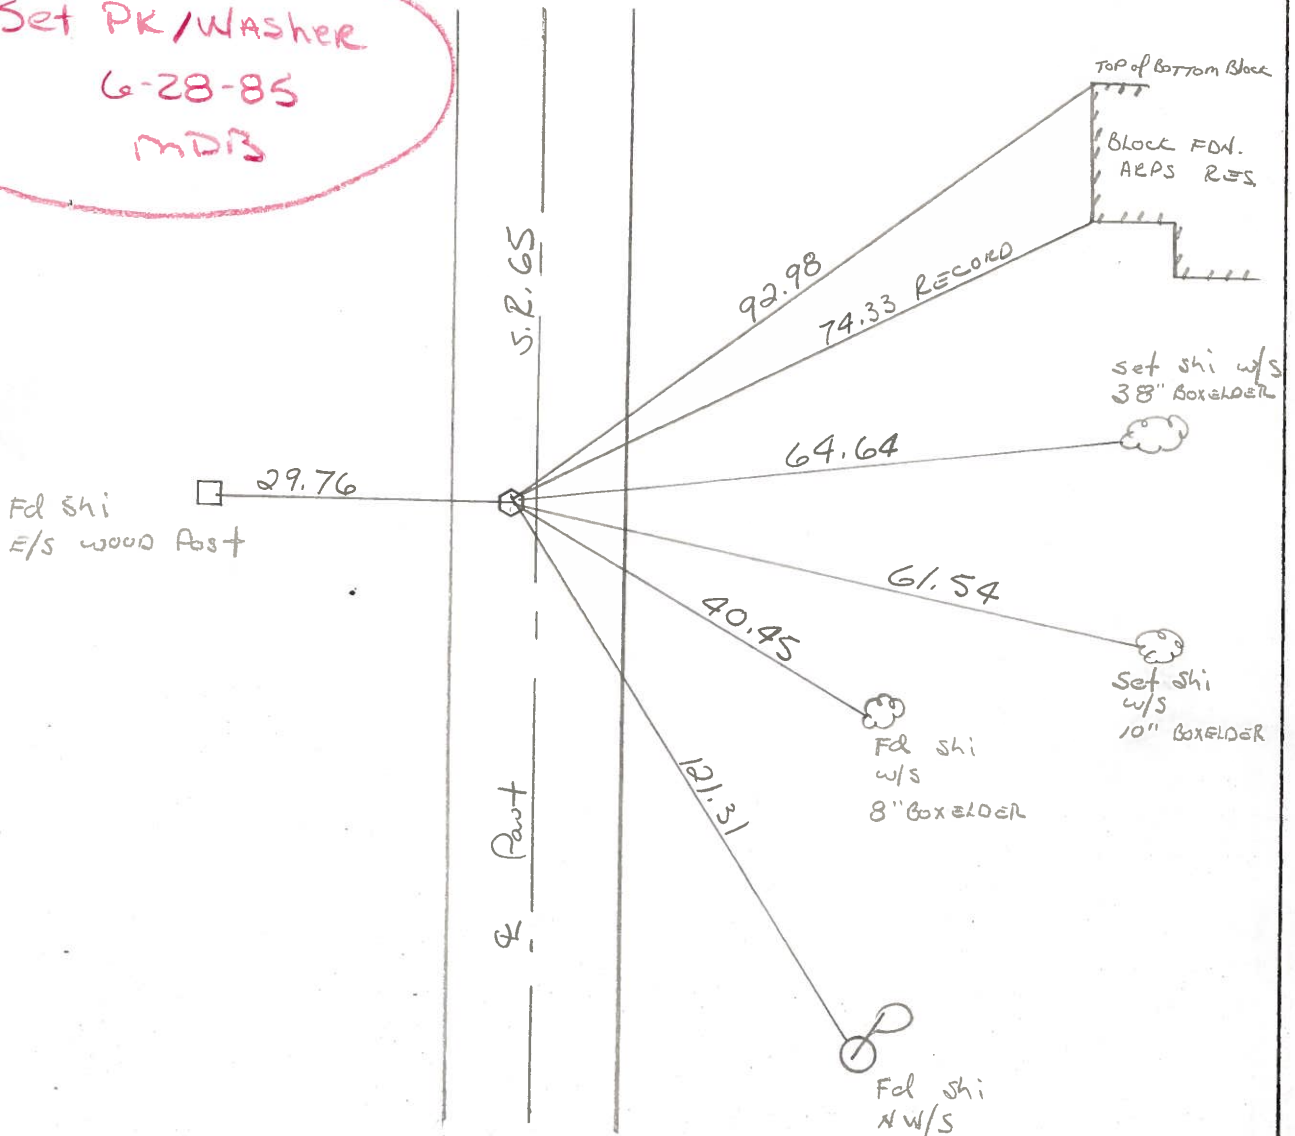 Set PK/WASHER
6-28-85
MDB
TOP of BOTTOM BLOCK
BLOCK FDN.
ARPS RES.
S.R. 65
92.98
74.33 RECORD
Set shi w/s
38" BOXELDER
64.64
29.76
Fd shi
E/S WOOD Post
61.54
40.45
Set shi
w/s
10" BOXELDER
Fd shi
w/s
8" BOXELDER
121.31
℄ Pavt
Fd shi
NW/S